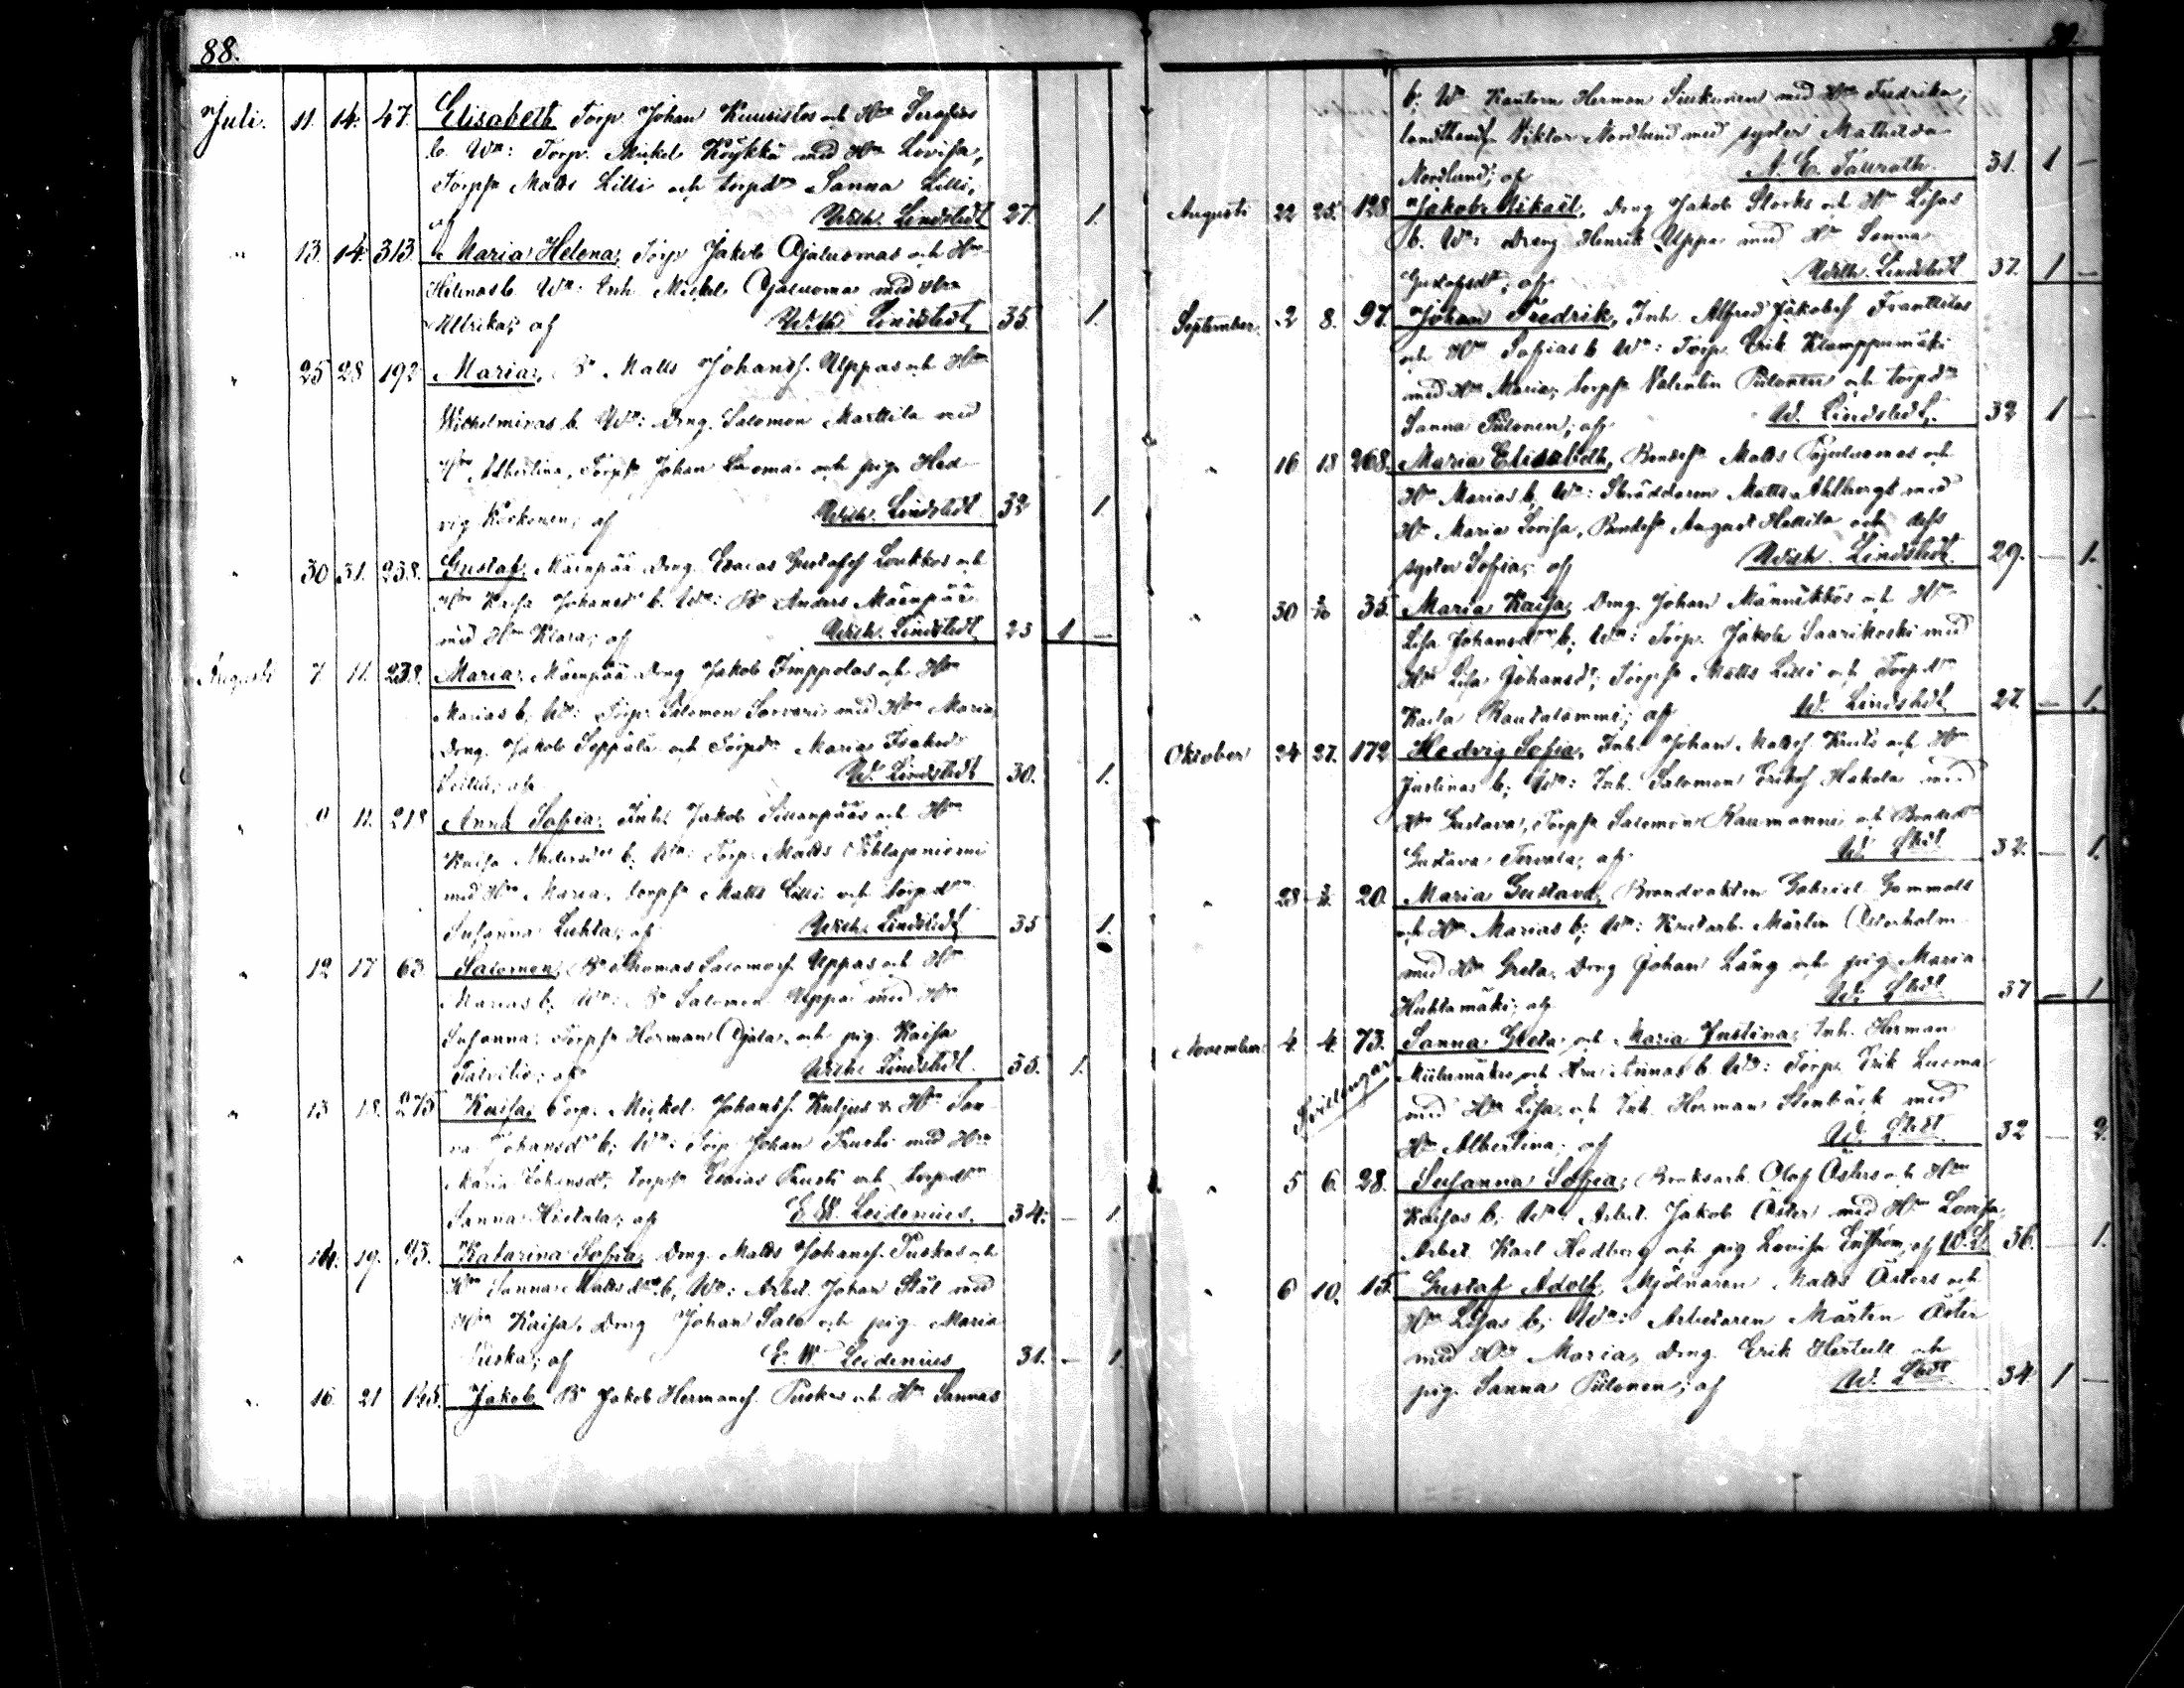 88.
Juli. 11. 14. 47. Elisabeth Torp. Johan Kuusistos och Hm Serafias
b. Wn: Torp. Mickel Köykkä med Hm Lovisa,
Torpsn Matts Lilli och torpdn Sanna Lilli,
af Wilh. Lindstedt 27. 1.
" 13. 14. 313. Maria Helena, Torp Jakob Ojaluomas och Hm
Helenas b. Wn: Inh. Mickel Ojaluoma med Hm
Ullrika; af Wilh Lindstedt 35. 1.
" 25 28 192 Maria, Bn Matts Johanss. Uppas och Hm
Wilhelminas b. Wn: Dreng. Salomon Marttila med
Hm Albertina, Torpsn Johan Luoma och pig. Hed-
vig Korkonen; af Wilh. Lindstedt 32 1
" 30 31. 238. Gustaf, Mäenpää dreng. Esaias Gustafss Loukkos och
Hm Kaisa Johansdr b. Wn: Bn Anders Mäenpää
med Hm Klara; af Wilh. Lindstedt 23 1 –
Augusti 7. 11. 238. Maria, Mäenpää dreng Jakob Imppolas och Hm
Marias b, Wn: Torp. Salomon Sorvari med Hm Maria,
Dreng. Jakob Seppälä och Torpdn Maria Isaksdr
af W. Lindstedt 30. 1.
" 9 11. 218 Anna Sofia, Inh. Jakob Sillanpääs och Hm
Kaisa Andersdr b. Wn: Torp. Matts
med Hm Maria, torpsn Matts Lilli och torpdn
Susanna Luhta; af Wilh. Lindstedt 35 1.
" 12 17 63. Salomon, Bn Thomas Salomonss. Uppas och Hm
Marias b; Wn: Bn Salomon Uppa med Hm
Susanna, Torpsn Herman Ojala, och pig. Kaisa
af Wilh. Lindstedt. 35. 1.
" 13. 18. 275 Kaisa, Torp. Mickel Johanss. Kuljus o. Hm San-
na Johansdr b; Wn: Torp Johan Prusti med Hm
Maria Johansdr, torpsn Esaias Prusti och torpdn
Sanna Hietala; af E. W. Leidenius. 34. – 1.
" 14. 19. 93. Katarina Sofia, Dreng. Matts Johanss. Puskas och
Hm Sanna Mattsdr b, Wn: Arbet. Johan Stål med
Hm Kaisa, Dreng Johan Salo och pig. Maria
Puska; af E. W. Leidenius 31. – 1
" 16. 21 145. Jakob, Bn Jakob Hermanss. Puskas och Hm Sannas
89.
b. Wn Kantorn Herman med Hm Fredrika,
Viktor Nordlund med syster Mathilda
Nordlund; af A. E. 31. 1 –
Augusti 22 25. 128. Jakob Mikael, Dreng Jakob Storks och Hm Lisas
b. Wn: Dreng Henrik Uppa med Hm Sanna
Gustafsdr; af Wilh. Lindstedt 37. 1 –
September. 2 8. 97. Johan Fredrik, Inh. Alfred Jakobss Franttilas
och Hm Sofias b Wn: Torp. Erik Klemppumäki
med Hm Maria, torpsn Valentin Piilonen och torpdn
Sanna Piilonen; af W. Lindstedt. 32 1 –
" 16 18 268. Maria Elisabeth, Bondesn Matts Pojuluomas och
Hm Marias b, Wn: Skräddaren Matts Ahlberg med
Hm Maria Lovisa, Bondesn August Hallila och dess
syster Sofia; af Wilh. Lindstedt. 29. – 1.
" 30 2/10 35. Maria Kaisa, Dreng. Johan Männikkös och Hm
Lisa Johansdr b; Wn: Torp. Jakob Saarikoski med
Hm Lisa Johansdr, Torpsn Matts Lilli och Torpdn
Kaisa Rautalammi; af W. Lindstedt 27. – 1.
Oktober 24 27. 172 Hedvig Sofia, Inh. Johan Mattss Knuts och Hm
Justinas b; Wn: Inh. Salomon Erikss Hakola med
Hm Gustava, Torpsn Salomon Raumanni och Bondedr
Gustava Tervala; af W. Lstdt 32. – 1.
" 28 20. Maria Gustava, Brandvakten Gabriel Gammals
och Hm Marias b; Wn: Krutarb. Mårten Österholm
med Hm Greta, Dreng Johan Lång och pig. Maria
Huhtamäki; af W. Lstdt 37 – 1
November. 4. 4. 73. Sanna Greta, och Maria Justina, Inh. Herman
Tvillingar Miilumäkis och Hm Annas b. Wn: Torp. Erik Luoma
med Hm Lisa, och Inh. Herman Stenbäck med
Hm Albertina; af W. Lstdt 32 – 2.
" 5 6. 28. Susanna Sofia, Bruksarb. Olof Östers och Hm
Kaisas b; Wn: Arbet. Jakob Öster med Hm Lovisa,
Arbet. Karl Hedberg och pig Lovisa Enström, af W. L. 36. – 1.
" 6 10. 15. Gustaf Adolf, Mjölnaren Matts Östers och
Hm Lisas b; Wn: Arbetaren Mårten Öster
med Hm Maria, Dreng. Erik Hertull och
pig. Sanna Piilonen; af W. Lstdt 34 1 –